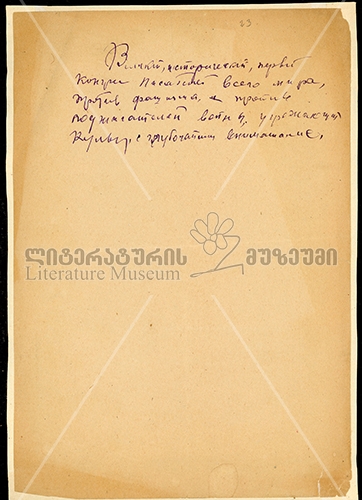 33
Великий, исторический, первый
Конгрес Писателей всего мира,
против фашизма, и против
поджигателей войны, угрожающих
Культуре с глубочайшим вниманием,
ლიტერატურის მუზეუმი
Literature Museum